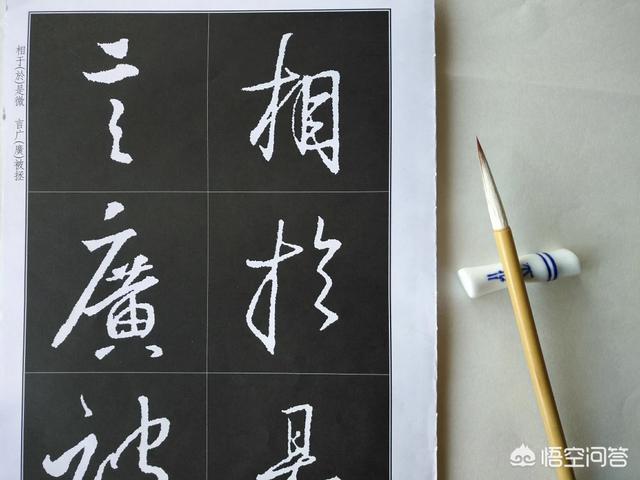 相於是
言廣被
相于(於)是微 言广(廣)被拯
悟空问答